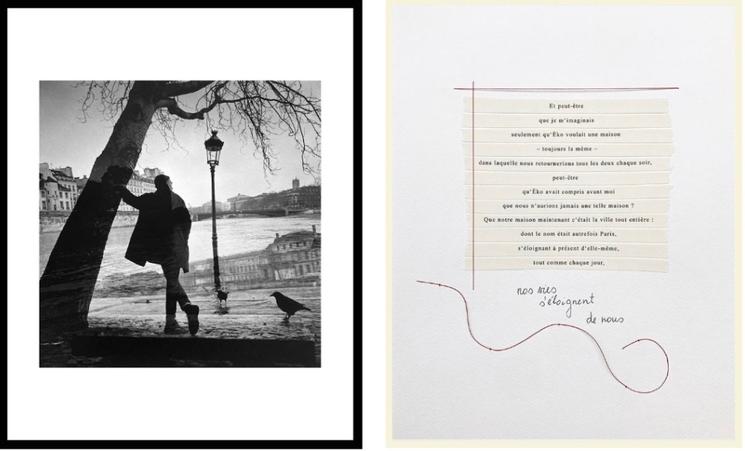 Et peut-être
que je m'imaginais
seulement qu'Ëko voulait une maison
– toujours la même –
dans laquelle nous retournerions tous les deux chaque soir,
peut-être
qu'Ëko avait compris avant moi
que nous n'aurions jamais une telle maison ?
Que notre maison maintenant c'était la ville tout entière :
dont le nom était autrefois Paris,
s'éloignant à présent d'elle-même,
tout comme chaque jour,
nos vies
s'éloignent
de nous